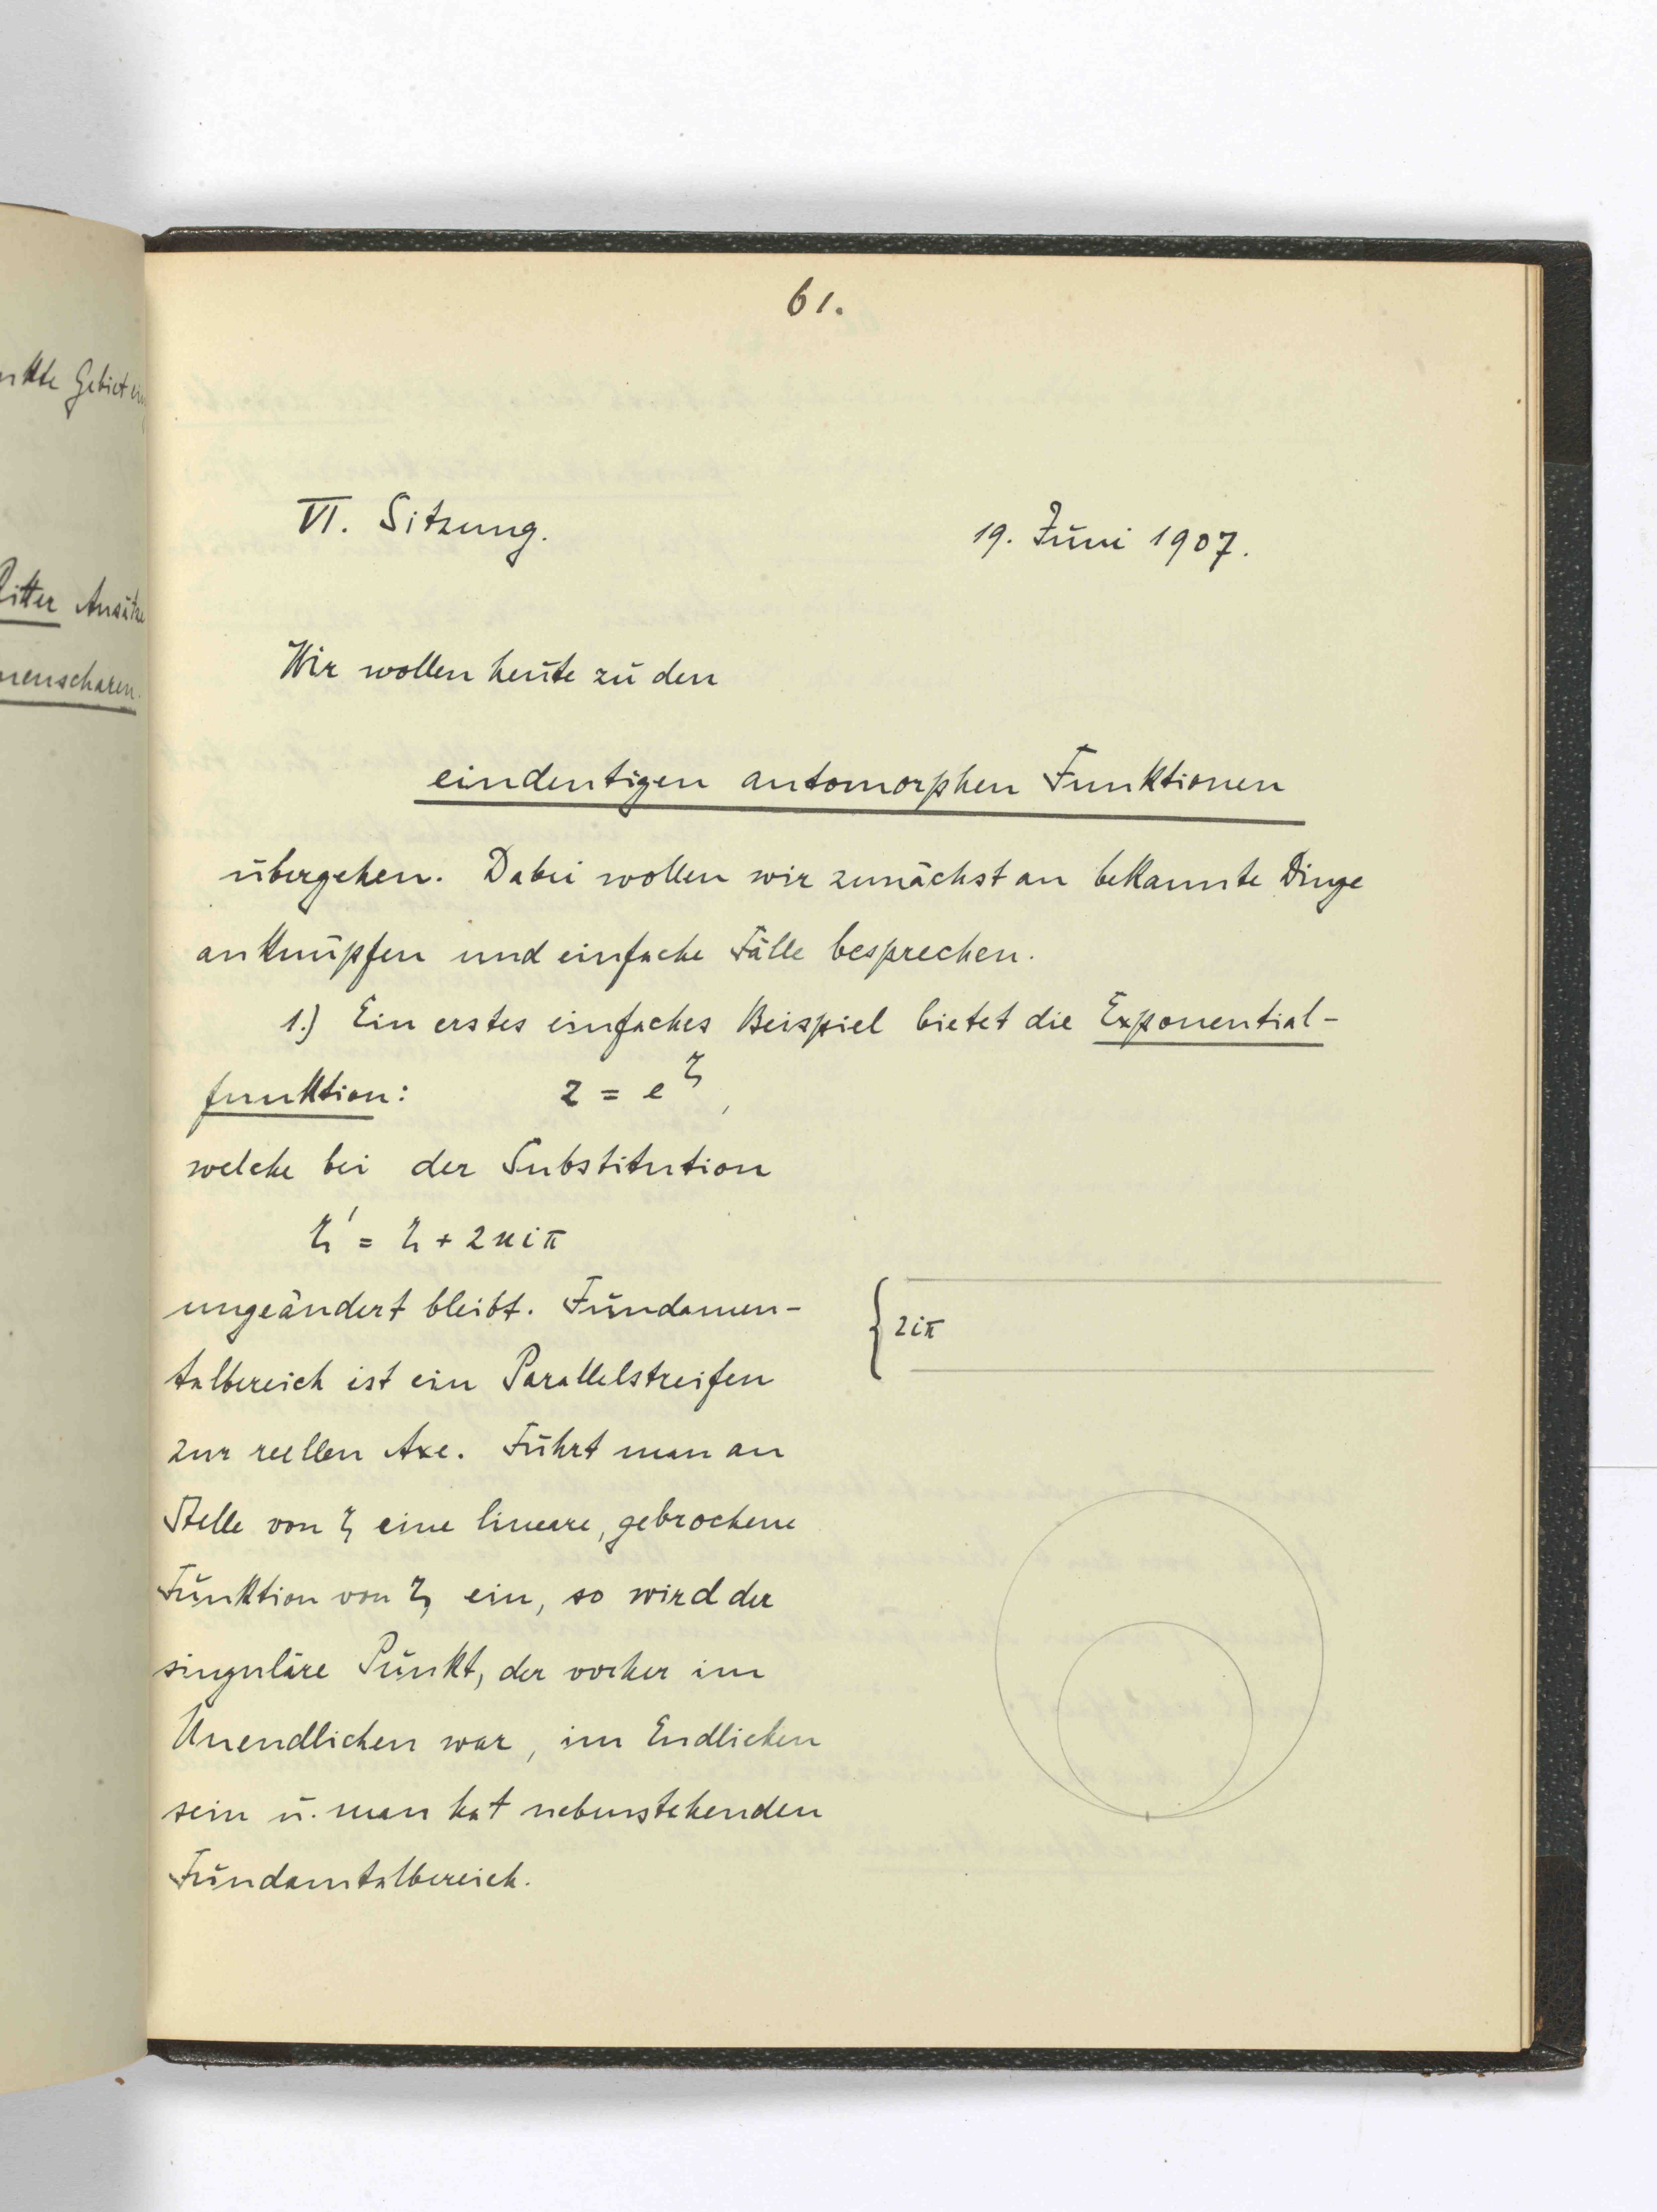 61.
VI. Sitzung.
19. Juni 1907.
Wir wollen heute zu den
eindeutigen automorphen Funktionen
übergehen. Dabei wollen wir zunächst an bekannte Dinge
anknüpfen und einfache Fälle besprechen.
1.) Ein erstes einfaches Beispiel bietet die Exponential-
funktion: z = e^ζ,
welche bei der Substitution
ζ' = ζ + 2niπ
ungeändert bleibt. Fundamen-
talbereich ist ein Parallelstreifen
zur reellen Axe. Führt man an
Stelle von ζ eine lineare, gebrochene
Funktion von ζ ein, so wird der
singuläre Punkt, der vorher im
Unendlichen war, im Endlichen
sein u. man hat nebenstehenden
Fundamtalbereich.
{ 2iπ
Gebiet
Ritter Ansätze